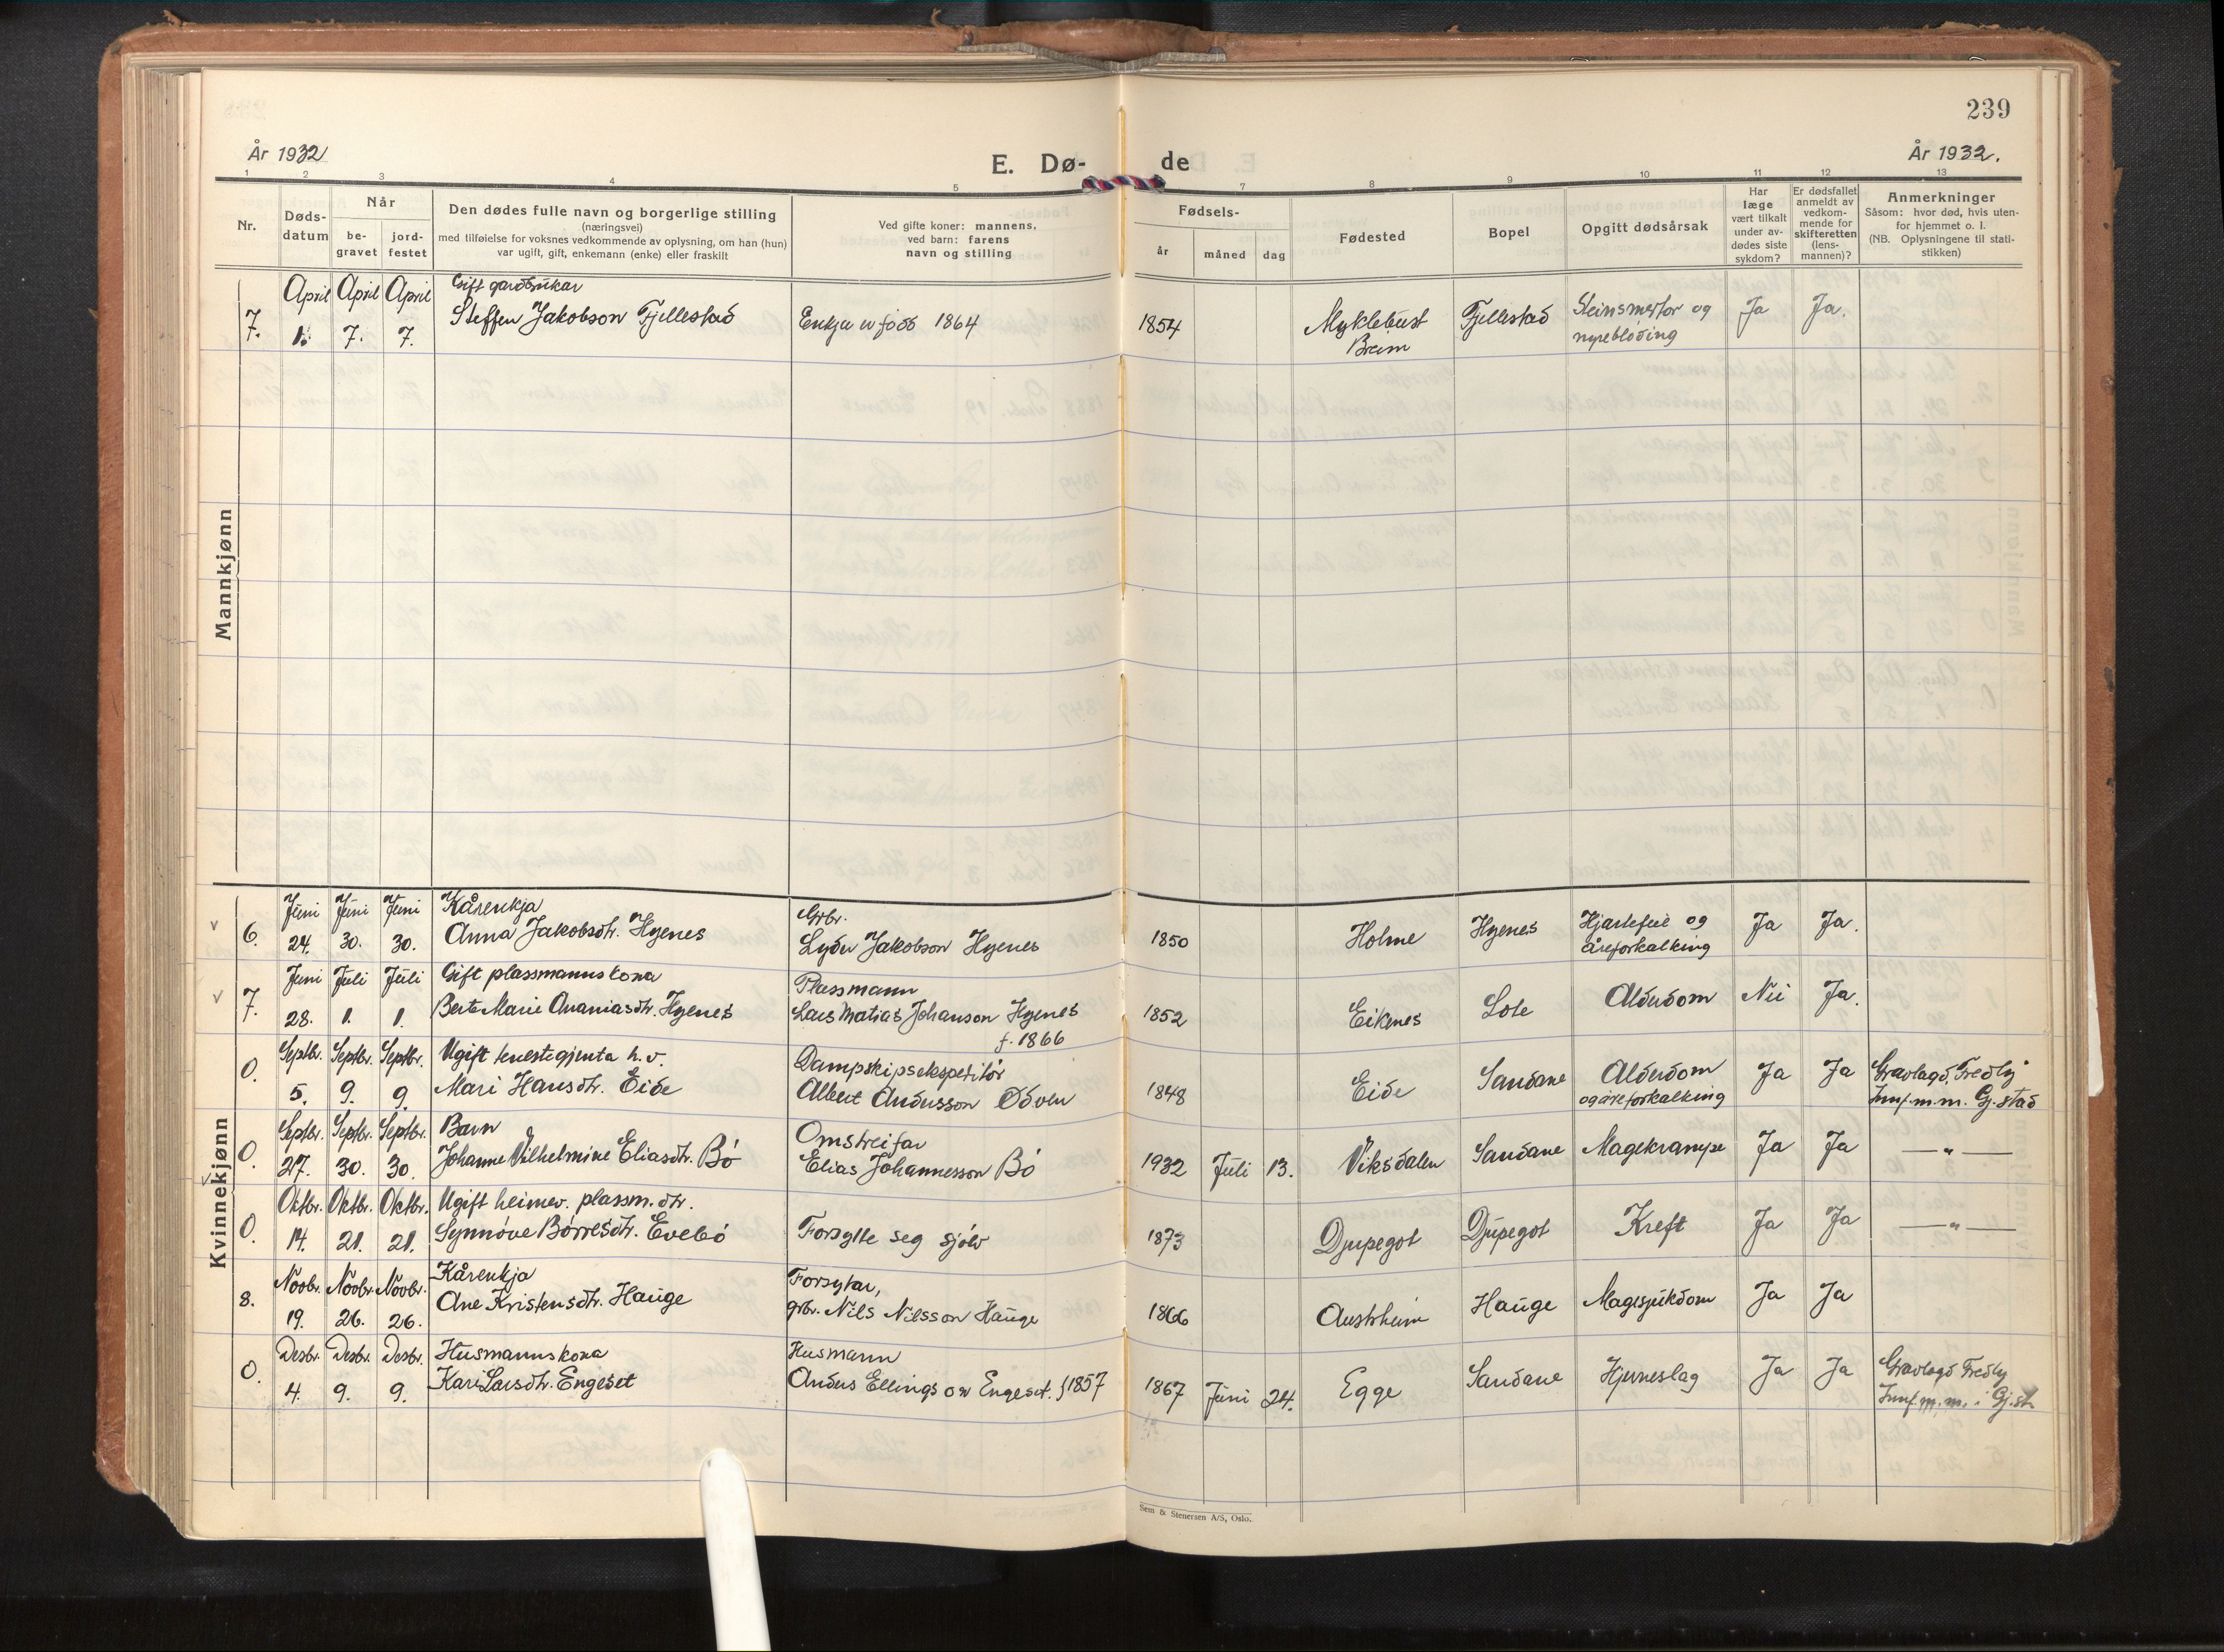 239
År 1932
E. Dø-
de
År 1932.
1 2 3 4 5 7 8 9 10 11 12 13
Nr.
Døds-
datum
Når
be-
gravet
jord-
festet
Den dødes fulle navn og borgerlige stilling
(næringsvei)
med tilføielse for voksnes vedkommende av oplysning, om han (hun)
var ugift, gift, enkemann (enke) eller fraskilt
Ved gifte koner: mannens,
ved barn: farens
navn og stilling
Fødsels-
år
måned
dag
Fødested
Bopel
Opgitt dødsårsak
Har
læge
vært tilkalt
under av-
dødes siste
sykdom?
Er dødsfallet
anmeldt av
vedkom-
mende for
skifteretten
(lens-
mannen)?
Anmerkninger
Såsom: hvor død, hvis uten-
for hjemmet o. l.
(NB. Oplysningene til stati-
stikken)
Mannkjønn
April April April Gift gardbrukar
7. 1. 7. 7. Steffen Jakobson Fjellestad Enkja er fødd 1864 1854 Myklebust Fjellestad Steinsmertor og Ja Ja.
Breim nyrebløding
Kvinnekjønn
Juni Juni Juni Kårenkja Grbr.
6. 24. 30. 30. Anna Jakobsdtr. Hyenes Lyder Jakobson Hyenes 1850 Holme Hyenes Hjartefeil og Ja Ja.
åreforkalking
Juni Juli Juli Gift plassmannskona Plassmann
7. 28. 1. 1. Berte Marie Ananiasdtr. Hyenes Lars Matias Johanson Hyenes 1852 Eikenes Lote Alderdom Nei Ja.
f. 1866
Septbr. Septbr. Septbr. Ugift tenestegjenta h. v. Dampskipsekspeditør
0. 5. 9. 9. Mari Hansdtr. Eide Albert Andersson Ødven 1848 Eide Sandane Alderdom Ja Ja Gravlagd, Fredly
og åreforkalking Innf. m.m. Gj.stad
Septbr. Septbr. Septbr. Barn Omstreifar
0. 27. 30. 30. Johanne Vilhelmine Eliasdtr. Bø Elias Johannesson Bø 1932 Juli 13. Viksdalen Sandane Magekrampe Ja Ja —"—
Oktbr. Oktbr. Oktbr. Ugift heimev. plassm. dtr.
0. 14. 21. 21. Synnøve Børresdtr. Evebø Forsytte seg sjølv 1873 Djupegot Djupegot Kreft Ja Ja —"—
Novbr. Novbr. Novbr. Kårenkja Forsytar,
8. 19. 26. 26. Ane Kristensdtr. Hauge grbr. Nils Nilsson Hauge 1866 Austrheim Hauge Magesjukdom Ja Ja
Desbr. Desbr. Desbr. Husmannskona Husmann
0. 4. 9. 9. Kari Larsdtr. Engeset Anders Ellingson Engeset. f 1857 1867 Juni 24. Egge Sandane Hjerneslag Ja Ja Gravlagd Fredly
Innf. m. m. i Gj.st.
Sem & Stenersen A/S, Oslo.